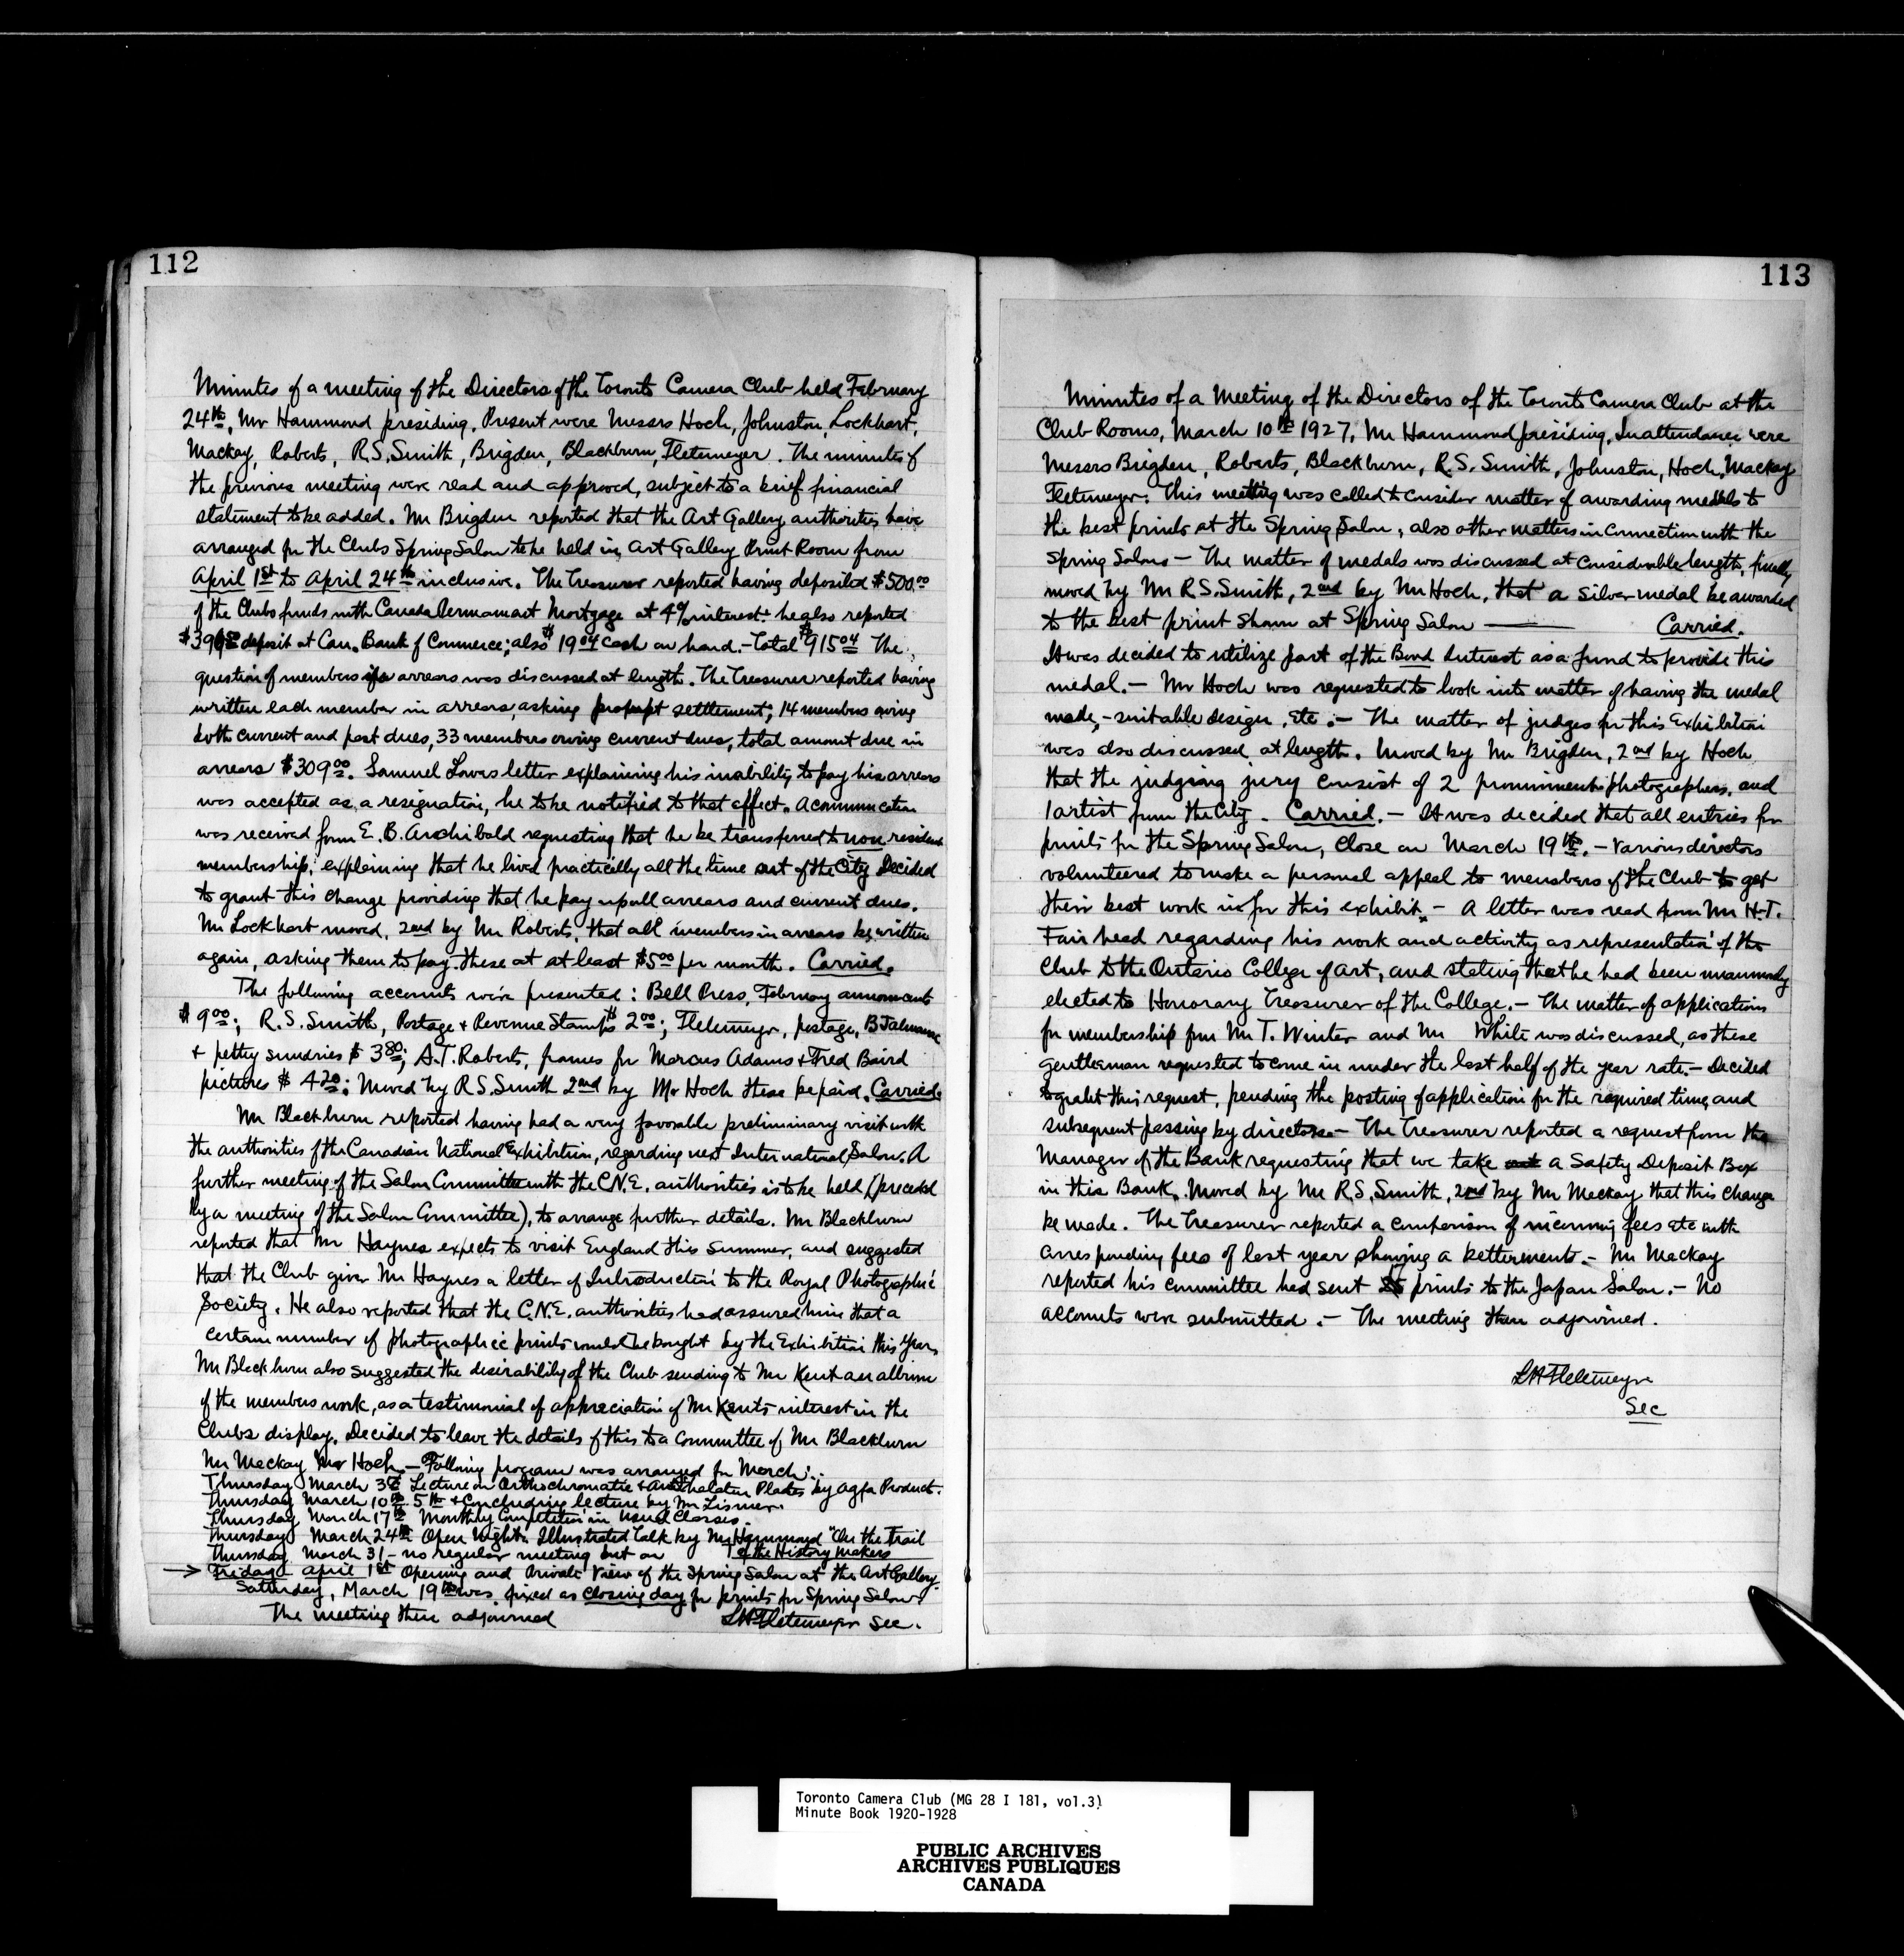 112
Minutes of a meeting of the Directors of the Toronto Camera Club held February
24th, Mr Hammond presiding, Present were Messrs Hoch, Johnston, Lockhart,
Mackay, Roberts, R.S. Smith, Brigden, Blackburn, Fletemeyer. The minutes of
the previous meeting were read and approved, subject to a brief financial
statement to be added. Mr Brigden reported that the Art Gallery authorities have
arranged for the Clubs Spring Salon to be held in Art Gallery Print Room from
April 1st to April 24th inclusive. The Treasurer reported having deposited $500.00
of the Clubs funds with Canada Permanent Mortgage at 4% interest. he also reported
deposit at Can. Bank of Commerce; also $19.04 cash on hand. - Total $915.04 The
question of members in arrears was discussed at length. The Treasurer reported having
written each member in arrears, asking prompt settlement; 14 members owing
both current and past dues, 33 members owing current dues, total amount due in
arrears $309.00. Samuel Loves letter explaining his inability to pay his arrears
was accepted as a resignation, he to be notified to that effect. A communication
was received from E. B. Archibald requesting that he be transferred to non resident
membership; explaining that he lived practically all the time out of the City Decided
to grant this change providing that he pay up all arrears and current dues.
Mr Lockhart moved, 2nd by Mr Roberts, that all members in arrears be written
again, asking them to pay these at at least $5.00 per month. Carried.
The following accounts were presented: Bell Press, February announcements
$9.00; R.S. Smith, Postage + Revenue Stamps $2.00; Fletemeyer, postage, B J
+ petty sundries $3.80; A.T. Roberts, frames for Marcus Adams + Fred Baird
pictures $4.20: Moved by R S. Smith 2nd by Mr Hoch these be paid. Carried.
Mr Blackburn reported having had a very favorable preliminary visit with
the authorities of the Canadian National Exhibition, regarding next International Salon. A
further meeting of the Salon Committee with the C.N.E. authorities is to be held (preceded
by a meeting of the Salon Committee), to arrange further details. Mr Blackburn
reported that Mr Haynes expects to visit England this summer, and suggested
that the Club give Mr Haynes a letter of Introduction to the Royal Photographic
Society. He also reported that the C.N.E. authorities had assured him that a
certain number of photographic prints would be bought by the Exhibition this year.
Mr Blackburn also suggested the desirability of the Club sending to Mr Kent an album
of the members work, as a testimonial of appreciation of Mr Kents interest in the
Clubs display. Decided to leave the details of this to a Committee of Mr Blackburn
Mr Mackay Mr Hoch. - Following program was arranged for March:.
Thursday March 3rd Lecture on Orthochromatic + Plates by Agfa Product.
Thursday March 10th 5th + Concluding lecture by Mr Lismer.
Thursday March 17th Monthly Competition in usual Classes.
Thursday March 24th Open Night. Illustrated Talk by Mr Hammond "On the Trail
of the History Makers
Thursday March 31 - no regular meeting but on
→ Friday April 1st Opening and Private View of the Spring Salon at the Art Gallery.
Saturday, March 19th was fixed as closing day for prints for Spring Salon.
The meeting then adjourned LH Fletemeyer Sec.
113
Minutes of a Meeting of the Directors of the Toronto Camera Club at the
Club Rooms, March 10th 1927, Mr Hammond presiding, In attendance were
Messrs Brigden, Roberts, Blackburn, R.S. Smith, Johnston, Hoch, Mackay
Fletemeyer. This meeting was called to consider matter of awarding medals to
the best prints at the Spring Salon; also other matters in connection with the
Spring Salons - The matter of medals was discussed at considerable length, finally
moved by Mr R.S. Smith, 2nd by Mr Hoch, that a silver medal be awarded
to the best print shown at Spring Salon —— Carried.
It was decided to utilize part of the Bond Interest as a fund to provide this
medal. - Mr Hoch was requested to look into matter of having the medal
made, - suitable design, etc. - The matter of judges for this Exhibition
was also discussed at length. Moved by Mr Brigden, 2nd by Hoch
that the judging jury consist of 2 prominent photographers, and
1 artist from the City. Carried. - It was decided that all entries for
prints for the Spring Salon, close on March 19th. - Various directors
volunteered to make a personal appeal to members of the Club to get
their best work in for this exhibit. - A letter was read from Mr H.T.
Fairhead regarding his work and activity as representation of the
Club to the Ontario College of Art, and stating that he had been unanimously
elected to Honorary Treasurer of the College. - The matter of applications
for membership from Mr T. Winter and Mr White was discussed, as these
gentleman requested to come in under the last half of the year rate. - Decided
to grant this request, pending the posting of application for the required time, and
subsequent passing by directors. - The Treasurer reported a request from the
Manager of the Bank requesting that we take out a Safety Deposit Box
in this Bank. Moved by Mr R.S. Smith, 2nd by Mr Mackay that this change
be made. The Treasurer reported a comparison of incoming fees etc with
corresponding fees of last year showing a betterment. - Mr Mackay
reported his committee had sent prints to the Japan Salon. - No
accounts were submitted. - The meeting then adjourned.
LH Fletemeyer
Sec
Toronto Camera Club (MG 28 I 181, vol.3)
Minute Book 1920-1928
PUBLIC ARCHIVES
ARCHIVES PUBLIQUES
CANADA